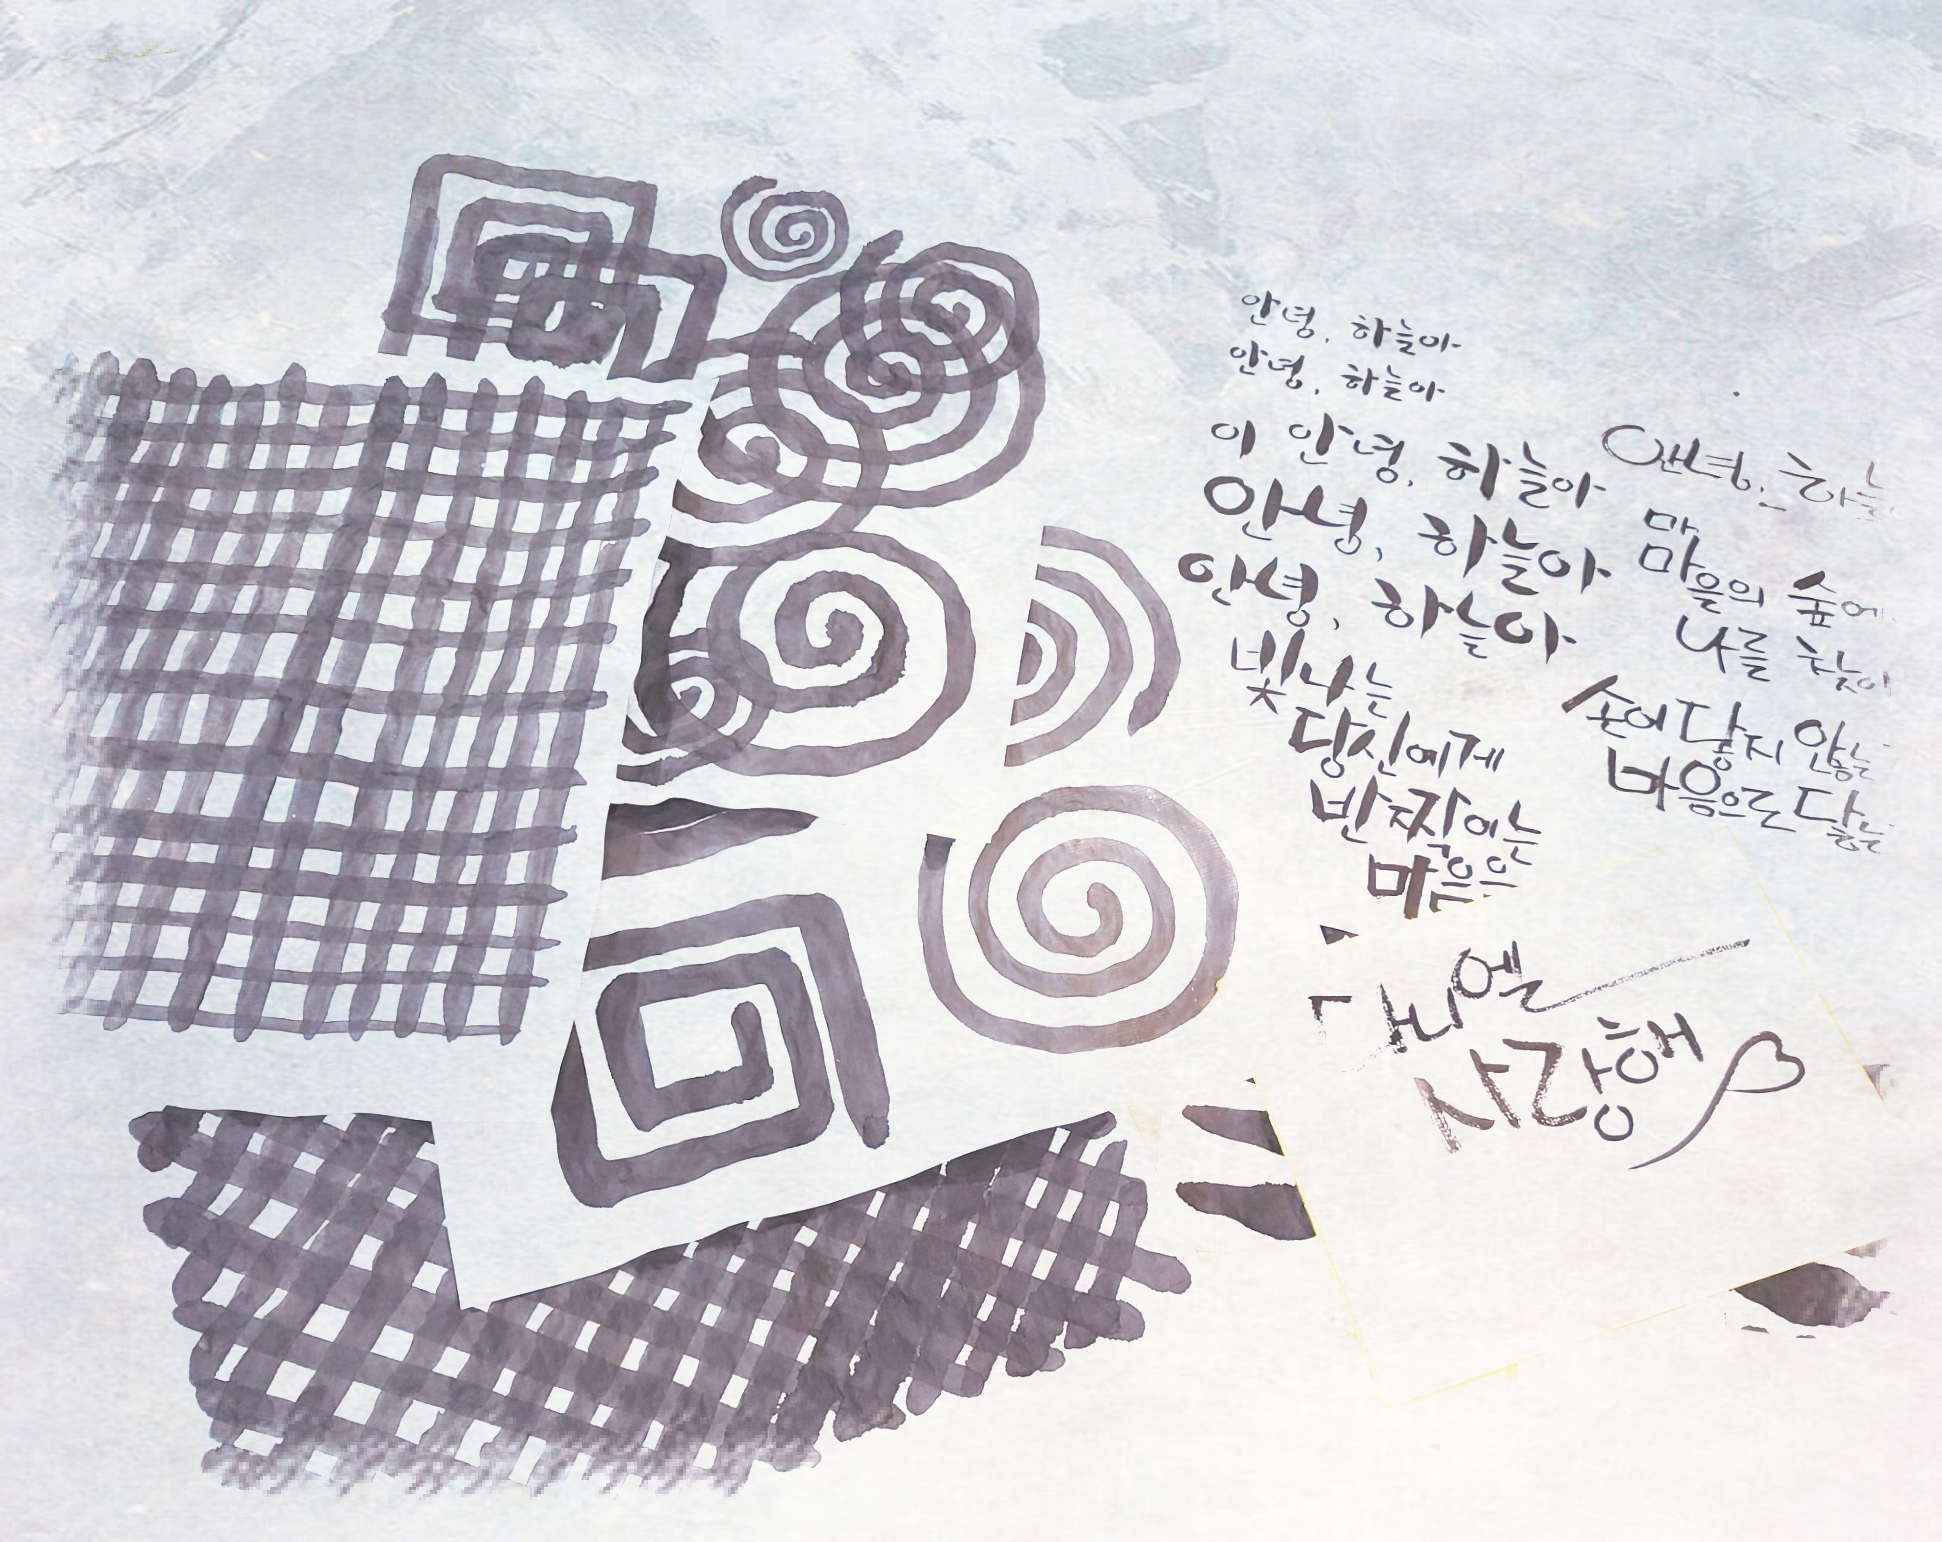 안녕, 하늘아
안녕, 하늘아
이 안녕, 하늘아
안녕, 하늘아
안녕, 하늘아
빛나는
당신에게
반짝이는
마음을
안녕, 하늘
마
마을의 숲에
나를
손에 닿지 않는
마음으로 닿는
다니엘
사랑해